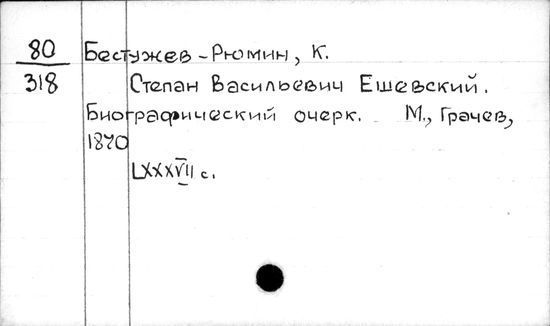 80 Бестужев-Рюмин, К.
318 Степан Васильевич Ешевский.
Биографический очерк. М., Грачев,
1870
LXXXVII с.